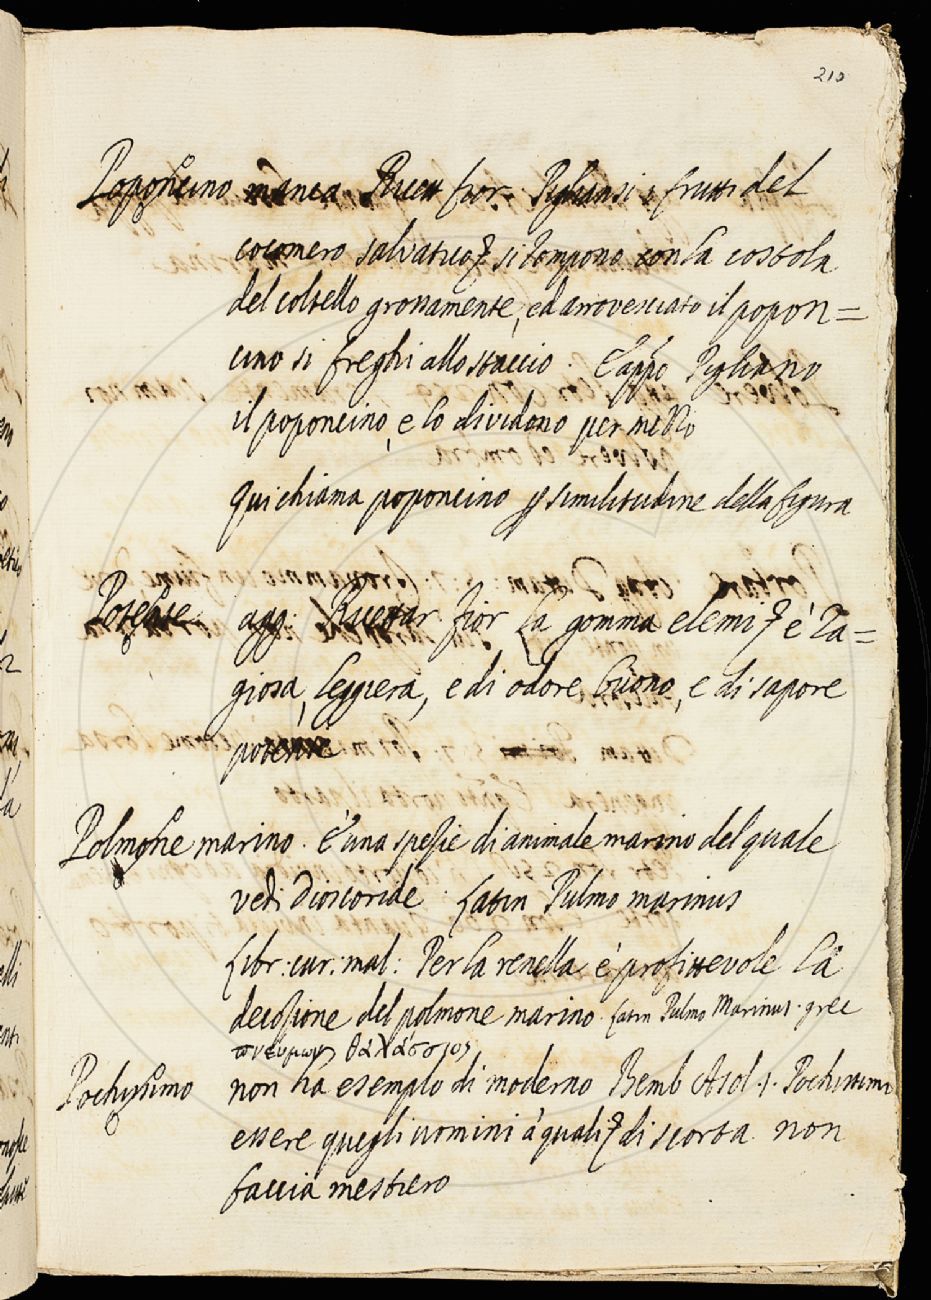 210
Poponcino manca Ricett fior. Pigliansi i frutti del
cocomero salvatico, si rompono con la costola
del coltello grossamente, ed arrovesciato il popon=
cino si freghi allo staccio. E appo Pigliano
il poponcino, e lo dividono per mezzo
qui chiama poponcino p similitudine della figura
Potente agg: Ricettar fior La gomma elemi, è ra=
giosa, leggiera, e di odore buono, e di sapore
potente
Polmone marino. È una spezie di animale marino del quale
vedi Dioscoride. Latin Pulmo marinus
Libr: cur: mal: Per la renella è profittevole la
decozione del polmone marino. Latin Pulmo Marinus. grec
πνεύμων θαλάσσιος
Pochissimo non ha esemplo di moderno Bemb Asol. 1. Pochissimi
essere quegli uomini a' quali di scorta non
faccia mestiero